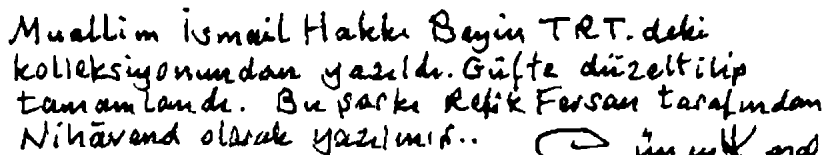 Muallim İsmail Hakkı Beyin TRT. deki
kolleksiyonundan yazıldı. Güfte düzeltilip
tamamlandı. Bu şarkı Refik Fersan tarafından
Nihâvend olarak yazılmış..